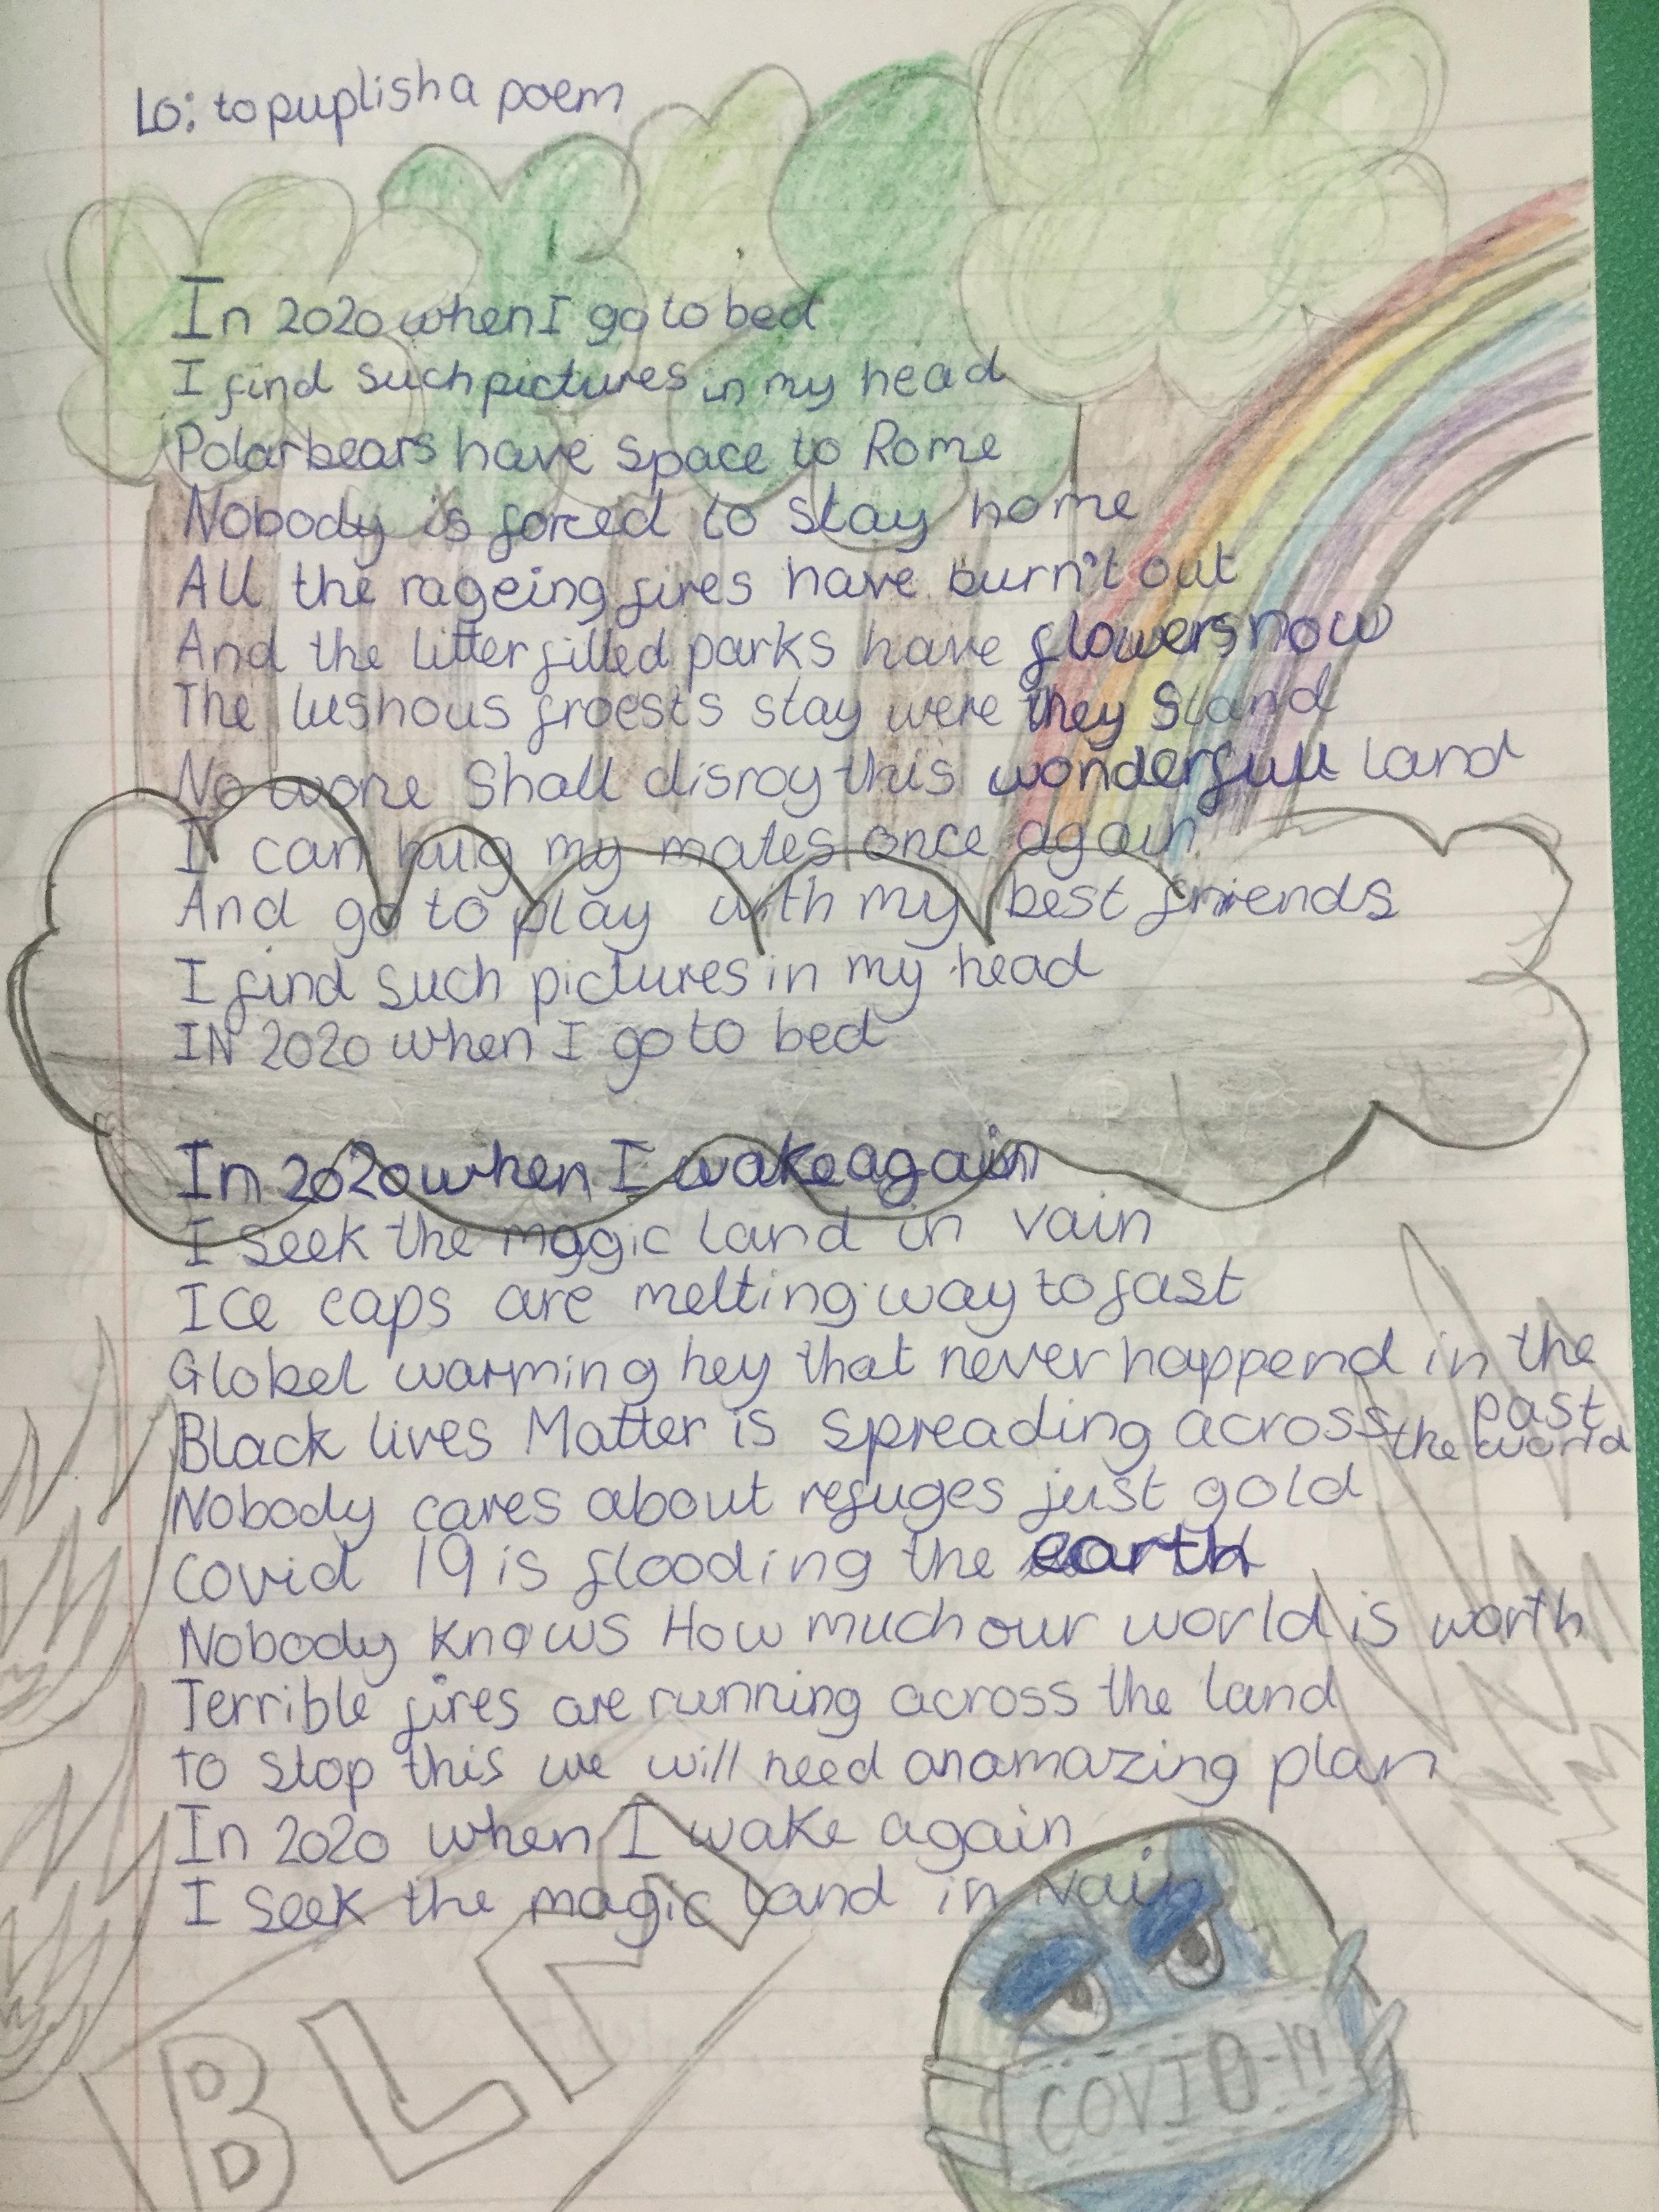 Lo: to puplish a poem
In 2020 when I go to bed
I find such pictures in my head
Polar bears have space to Rome
Nobody is forced to stay home
All the rageing fires have burn't out
And the litter filled parks have flowers now
The lushous froests stay were they stand
No wone Shall disroy this wonderfull land
I can hug my mates once again
And go to play with my best friends
I find such pictures in my head
IN 2020 when I go to bed
In 2020 when I wake again
I seek the magic land in vain
Ice caps are melting way to fast
Globel warming hey that never happend in the past
Black lives Matter is spreading across the world
Nobody cares about refuges just gold
Covid 19 is flooding the earth
Nobody knows How much our world is worth
Terrible fires are running across the land
to stop this we will need an amazing plan
In 2020 when I wake again
I seek the magic land in vain
BLM
COVID-19